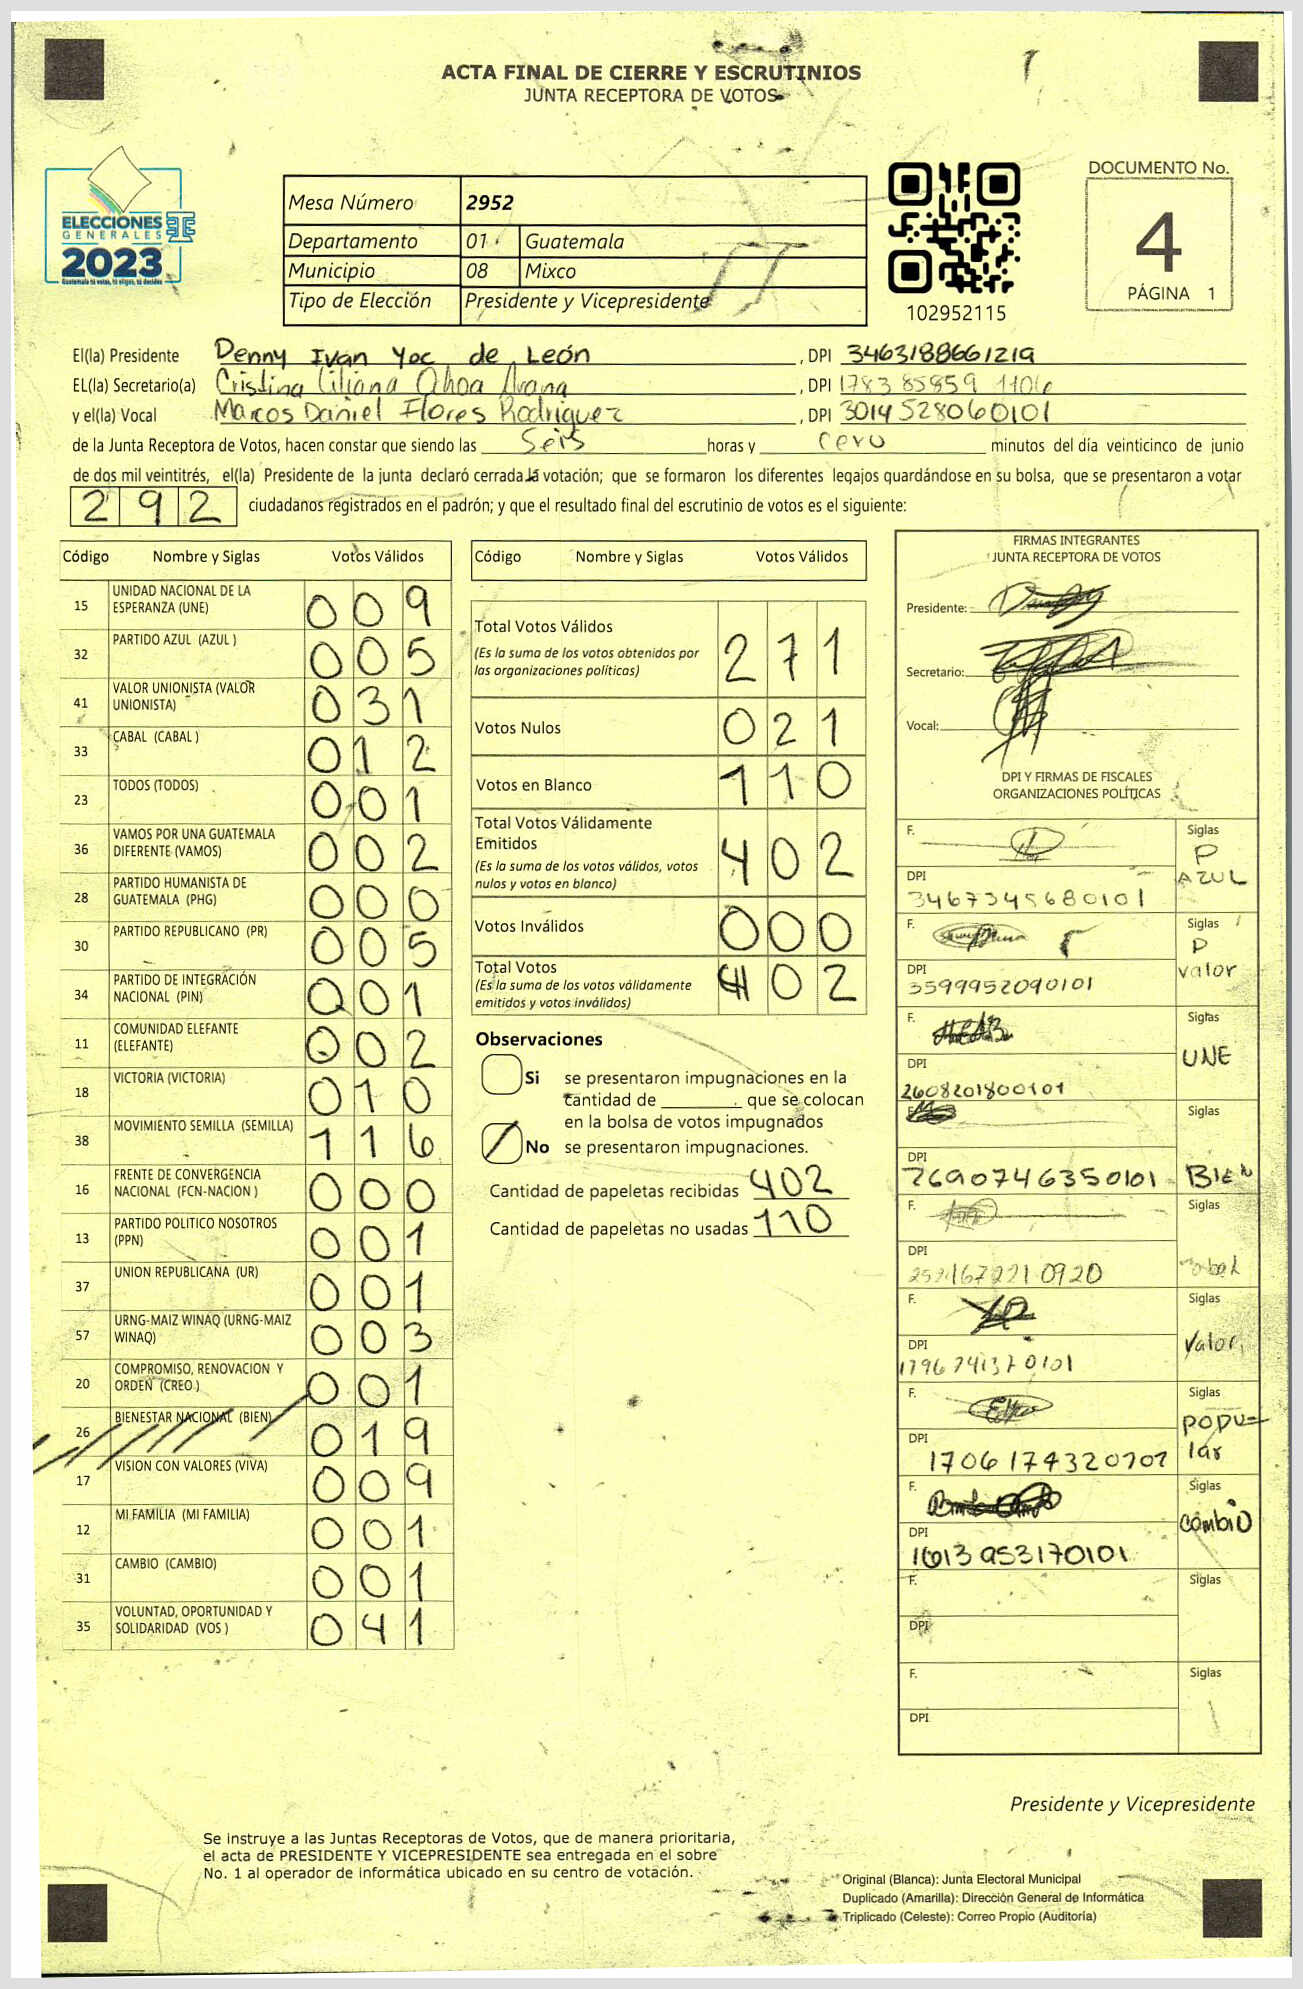 ACTA FINAL DE CIERRE Y ESCRUTINIOS
JUNTA RECEPTORA DE VOTOS
ELECCIONES
GENERALES
2023
Guatemala tú votas, tú eliges, tú decides
Mesa Número 2952
Departamento 01 Guatemala
Municipio 08 Mixco
Tipo de Elección Presidente y Vicepresidente
102952115
DOCUMENTO No.
4
PÁGINA 1
El(la) Presidente Denny Ivan Yoc de León, DPI 3463188661219
EL(la) Secretario(a) Cristina Liliana Arana, DPI 178385859 1106
y el(la) Vocal Marcos Daniel Flores Rodriguez, DPI 3014528060101
de la Junta Receptora de Votos, hacen constar que siendo las Seis horas y cero minutos del día veinticinco de junio
de dos mil veintitrés, el(la) Presidente de la junta declaró cerrada la votación; que se formaron los diferentes legajos guardándose en su bolsa, que se presentaron a votar
292 ciudadanos registrados en el padrón; y que el resultado final del escrutinio de votos es el siguiente:
Código Nombre y Siglas Votos Válidos
15 UNIDAD NACIONAL DE LA ESPERANZA (UNE) 009
32 PARTIDO AZUL (AZUL ) 005
41 VALOR UNIONISTA (VALOR UNIONISTA) 031
33 CABAL (CABAL ) 012
23 TODOS (TODOS) 001
36 VAMOS POR UNA GUATEMALA DIFERENTE (VAMOS) 002
28 PARTIDO HUMANISTA DE GUATEMALA (PHG) 000
30 PARTIDO REPUBLICANO (PR) 005
34 PARTIDO DE INTEGRACIÓN NACIONAL (PIN) 001
11 COMUNIDAD ELEFANTE (ELEFANTE) 002
18 VICTORIA (VICTORIA) 010
38 MOVIMIENTO SEMILLA (SEMILLA) 116
16 FRENTE DE CONVERGENCIA NACIONAL (FCN-NACION ) 000
13 PARTIDO POLITICO NOSOTROS (PPN) 001
37 UNION REPUBLICANA (UR) 001
57 URNG-MAIZ WINAQ (URNG-MAIZ WINAQ) 003
20 COMPROMISO, RENOVACION Y ORDEN (CREO ) 001
26 BIENESTAR NACIONAL (BIEN) 019
17 VISION CON VALORES (VIVA) 009
12 MI FAMILIA (MI FAMILIA) 001
31 CAMBIO (CAMBIO) 001
35 VOLUNTAD, OPORTUNIDAD Y SOLIDARIDAD (VOS ) 041
Código Nombre y Siglas Votos Válidos
Total Votos Válidos 271
(Es la suma de los votos obtenidos por
las organizaciones políticas)
Votos Nulos 021
Votos en Blanco 110
Total Votos Válidamente
Emitidos 402
(Es la suma de los votos válidos, votos
nulos y votos en blanco)
Votos Inválidos 000
Total Votos 402
(Es la suma de los votos válidamente
emitidos y votos inválidos)
Observaciones
Si se presentaron impugnaciones en la
cantidad de ________. que se colocan
en la bolsa de votos impugnados
No se presentaron impugnaciones.
Cantidad de papeletas recibidas 402
Cantidad de papeletas no usadas 110
FIRMAS INTEGRANTES
JUNTA RECEPTORA DE VOTOS
Presidente:
Secretario:
Vocal:
DPI Y FIRMAS DE FISCALES
ORGANIZACIONES POLÍTICAS
F. Siglas
P AZUL
DPI
3467345680101
F. Siglas
P valor
DPI
3599952090101
F. Siglas
UNE
DPI
2608201800101
F. Siglas
BIEN
DPI
2690746350101
F. Siglas
DPI
F. Siglas
Valor
DPI
1796741370101
F. Siglas
POPU-
lar
DPI
1706174320101
F. Siglas
cambiO
DPI
1613953170101
F. Siglas
DPI
F. Siglas
DPI
Presidente y Vicepresidente
Se instruye a las Juntas Receptoras de Votos, que de manera prioritaria,
el acta de PRESIDENTE Y VICEPRESIDENTE sea entregada en el sobre
No. 1 al operador de informática ubicado en su centro de votación.
Original (Blanca): Junta Electoral Municipal
Duplicado (Amarilla): Dirección General de Informática
Triplicado (Celeste): Correo Propio (Auditoría)